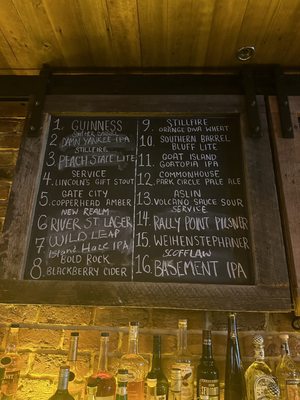 1. GUINNESS
SOUTHERN BARREL
2. DAMN YANKEE IPA
STILLFIRE
3. PEACH STATE LITE
SERVICE
4. LINCOLN'S GIFT STOUT
GATE CITY
5. COPPERHEAD AMBER
NEW REALM
6 RIVER ST LAGER
7 WILD LEAP
Island Haze IPA
BOLD ROCK
8. BLACKBERRY CIDER
9. STILLFIRE
ORANGE DWA WHEAT
10. SOUTHERN BARREL
BLUFF LITE
11. GOAT ISLAND
GOATOPIA IPA
COMMONHOUSE
12. PARK CIRCLE PALE ALE
ASLIN
13. VOLCANO SAUCE SOUR
SERVICE
14. RALLY POINT PILSNER
15. WEIHENSTEPHANER
SCOFFLAW
16. BASEMENT IPA